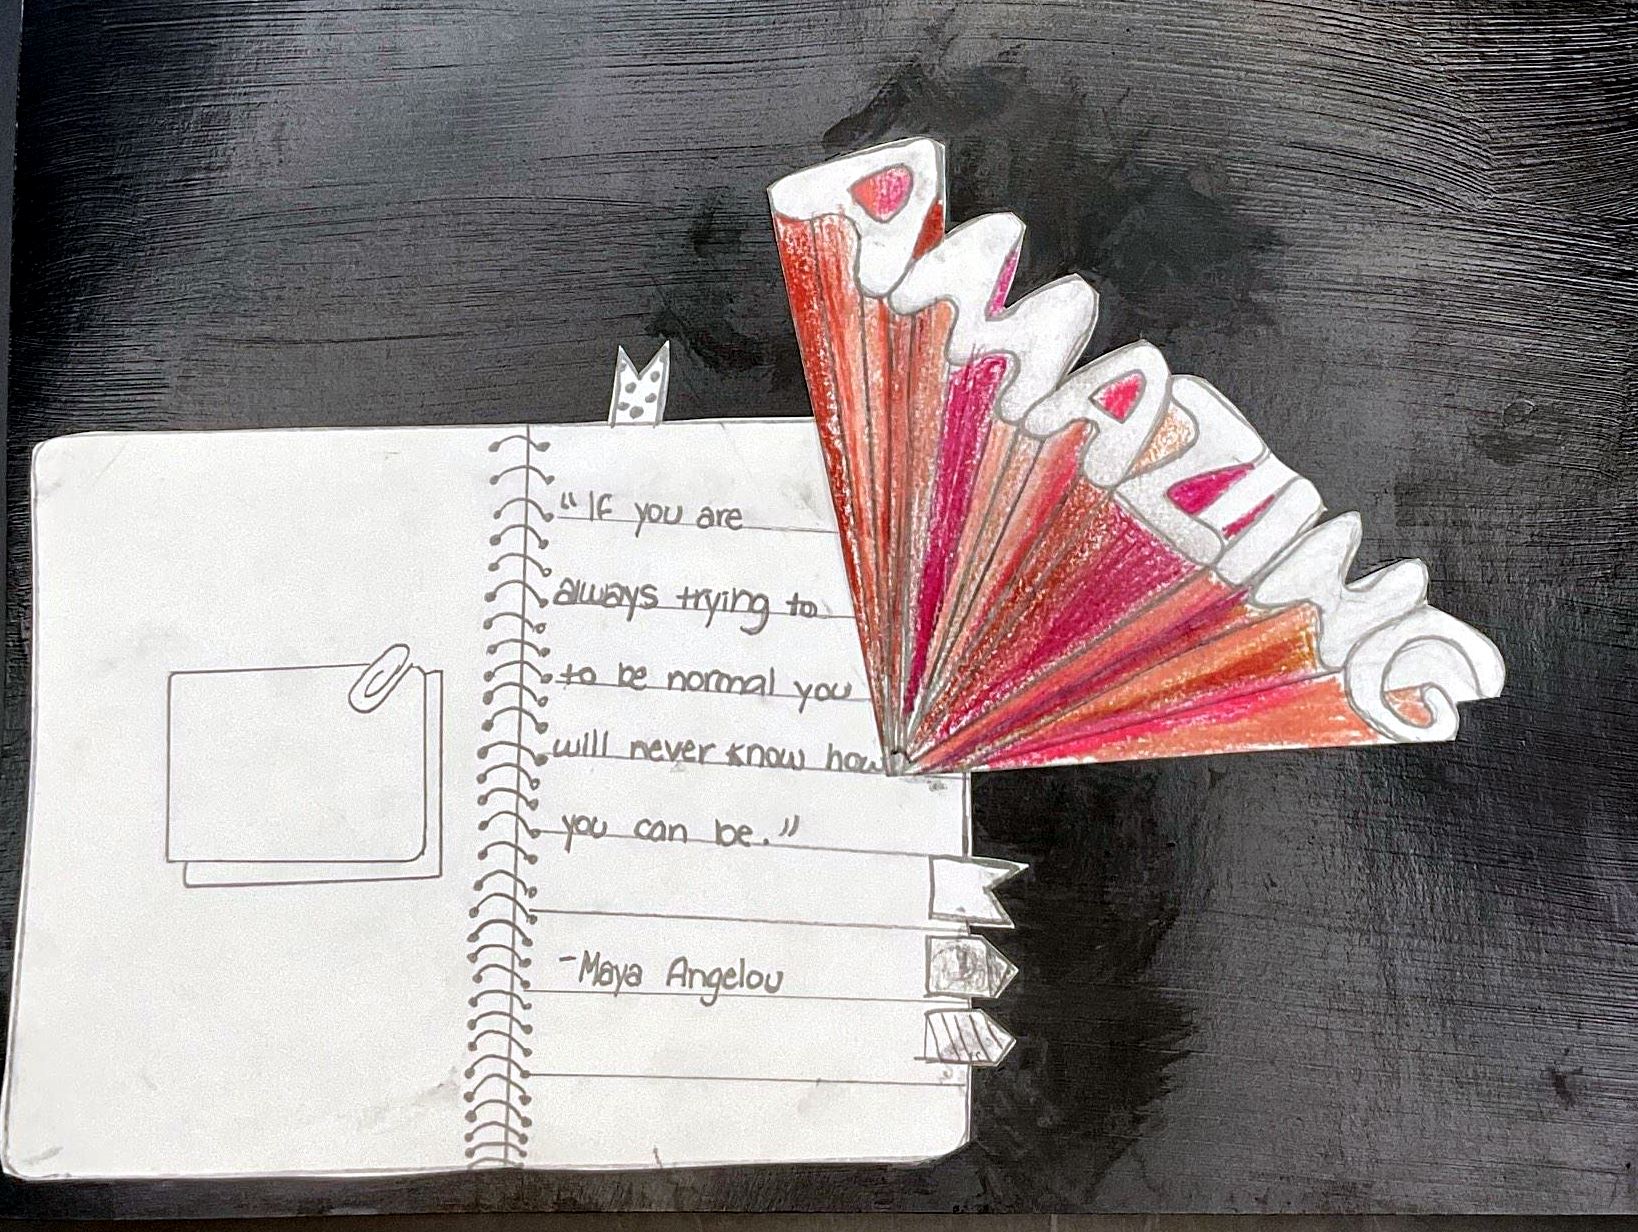 "If you are
always trying to
to be normal you
will never know how
AMAZING
you can be."
-Maya Angelou